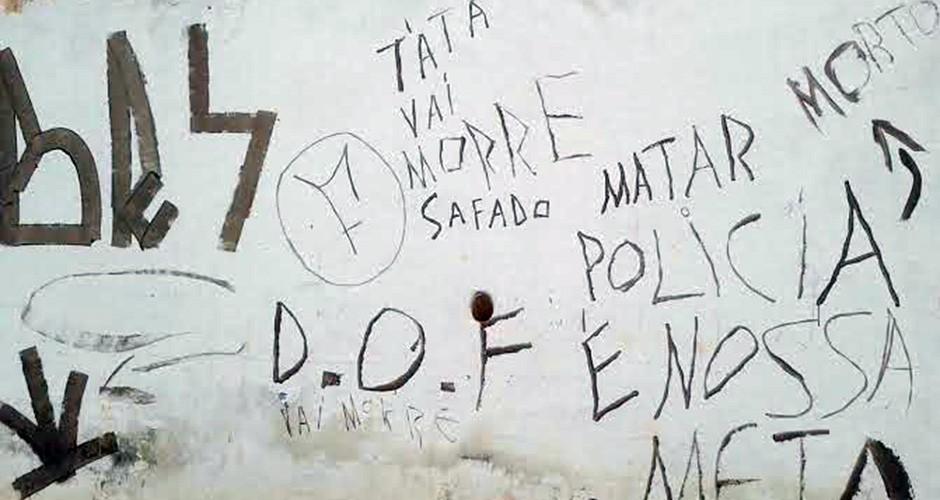 TÁTA
VAI
MORRE
SAFADO
MORTO
MATAR
POLICIA
É NOSSA
META
D.O.F
VAI MORRE